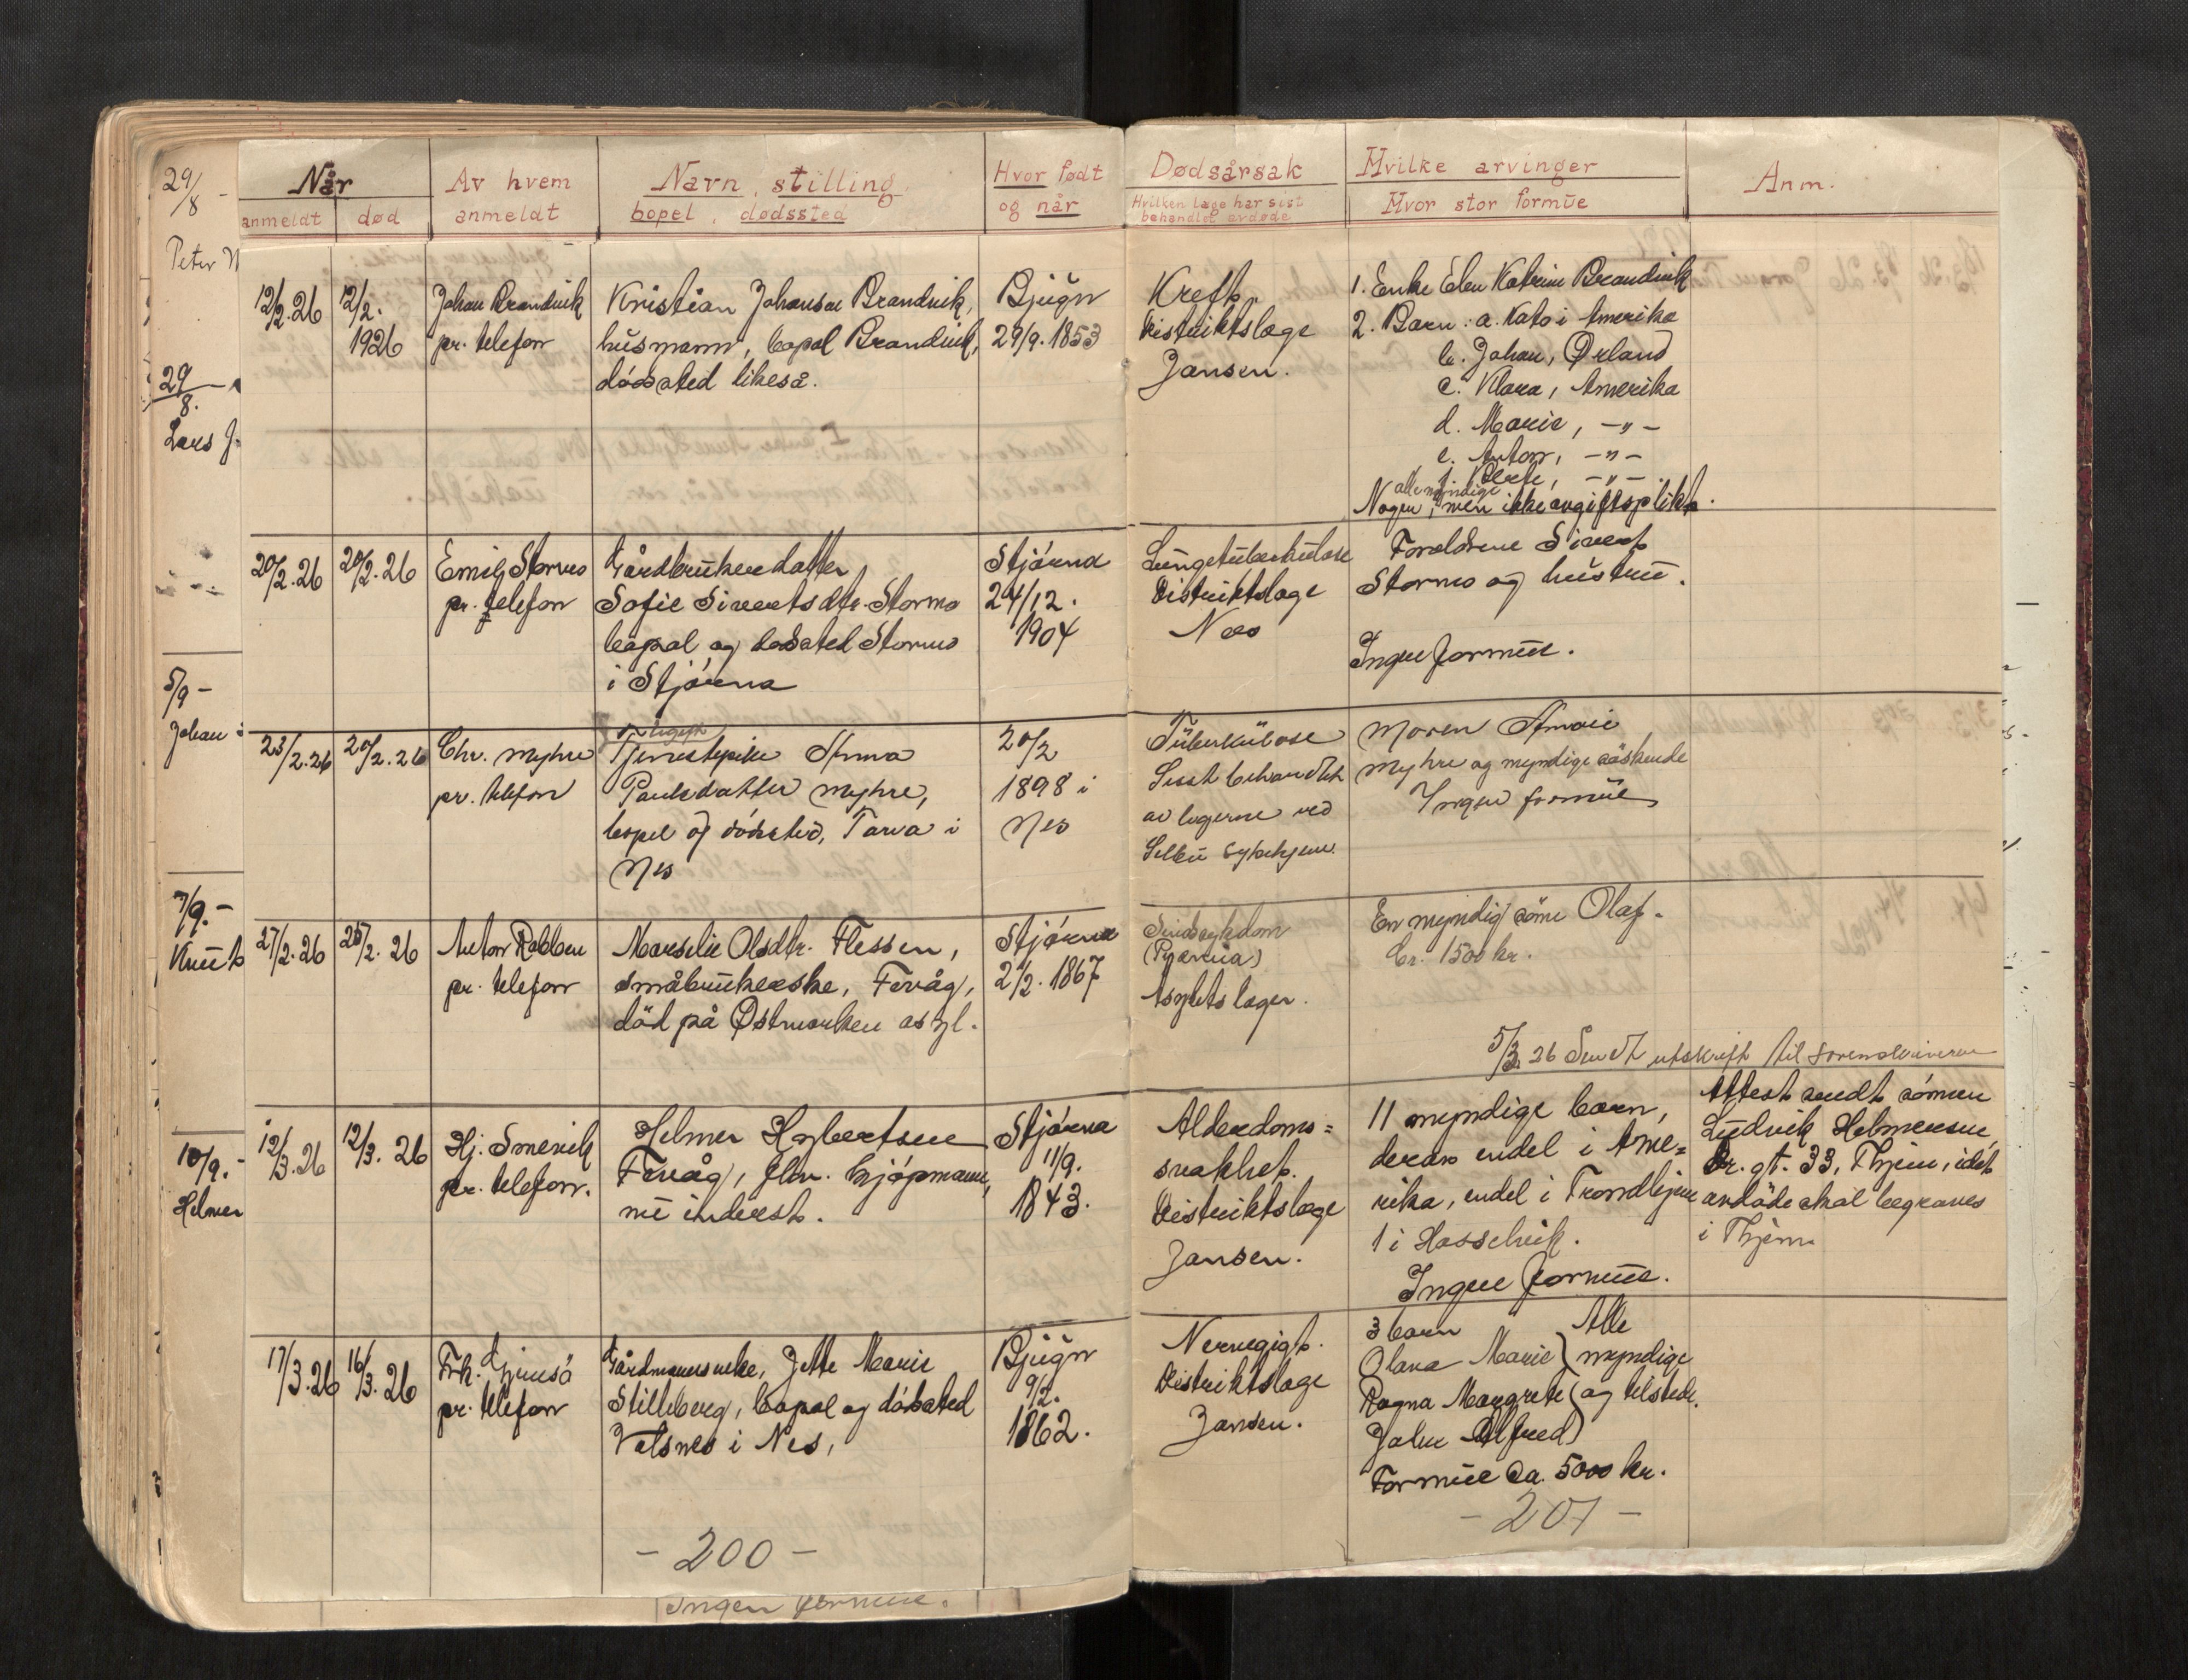 29/8 -
Peter
29/8. -
Lars J.
5/9 -
Johan
7/9. -
Knut
10/9. -
Helmer
Når
anmeldt død
Av hvem
anmeldt
Navn, stilling
bopel, dødssted
Hvor født
og når
12/2.26
12/2.
1926
Johan Brandvik
pr. telefon
Kristian Johansen Brandvik,
husmann, bopel Brandvik,
dødssted likeså.
Bjugn
29/9. 1853
20/2.26
20/2.26
Emil Stormo
pr. telefon
Gårdbrukerdatter
Sofie Sivertsdtr. Stormo
bopel og dødssted Stormo
i Stjørna
Stjørna
24/12.
1904
23/2.26
20/2.26
Chr. Myhre
pr. telefon
ugift
Tjenestepike Anna
Paulsdatter Myhre,
bopel og dødssted, Tarva i
Nes
20/2
1898 i
Nes
27/2.26
25/2.26
Anton Rabben
pr. telefon
Marselie Olsdtr. Flessen,
småbrukerske, Fevåg,
död på Østmarken asyl.
Stjørna
2/2. 1867
12/3.26
12/3.26
Hj. Smevik
pr. telefon.
Helmer Hagbertsen
Fevåg, fhv. kjøpmann,
nu inderst.
Stjørna
11/9.
1843.
17/3.26
16/3.26
Frk.
pr. telefon
Gårdmannsenke, Jette Marie
Stilleberg, bopel og dødssted
Valsnes i Nes,
Bjugn
9/2.
1862.
- 200 -
Ingen formue.
Dødsårsak
Hvilken læge har sist
behandlet avdøde
Hvilke arvinger
Hvor stor formue
Anm.
Kreft.
Distriktslæge
Jansen.
1. Enke Elen Katrine Brandvik
2. Barn: a. Kato i Amerika
b. Johan, Ørland
c. Klara, Amerika
d. Marie, -"-
e. Anton, -"-
f. Peder, -"-
alle myndige
Nogen, men ikke avgiftsplikt.
Lungetuberkulose
Distriktslæge
Næs
Foreldrene Sivert
Stormo og hustru.
Ingen formue.
Tuberkulose
Sisst behandlet
av legerne ved
Selbu sykehjem.
Moren
Myhre og myndige søskende
Ingen formue
Sindssykdom
Asylets læger.
En myndig sönn Olaf.
br. 1500 kr.
5/3. 26 Sendt utskrift til sorenskriveren
Alderdoms=
svakhet.
Distriktslæge
Jansen.
11 myndige barn,
derav endel i Ame=
rika, endel i Trondhjem
1 i Hasselvik.
Ingen formue.
Attest sendt sønnen
Ludvik Helmersen,
Dr. gt. 33, Thjem, idet
avdöde skal begraves
i Thjem.
Nervegigt.
Distriktslæge
Jansen.
3 barn Alle
Olava Marie myndige
Ragna Margrete og tilstede.
Johan Alfred
Formue ca. 5000 kr.
- 201 -